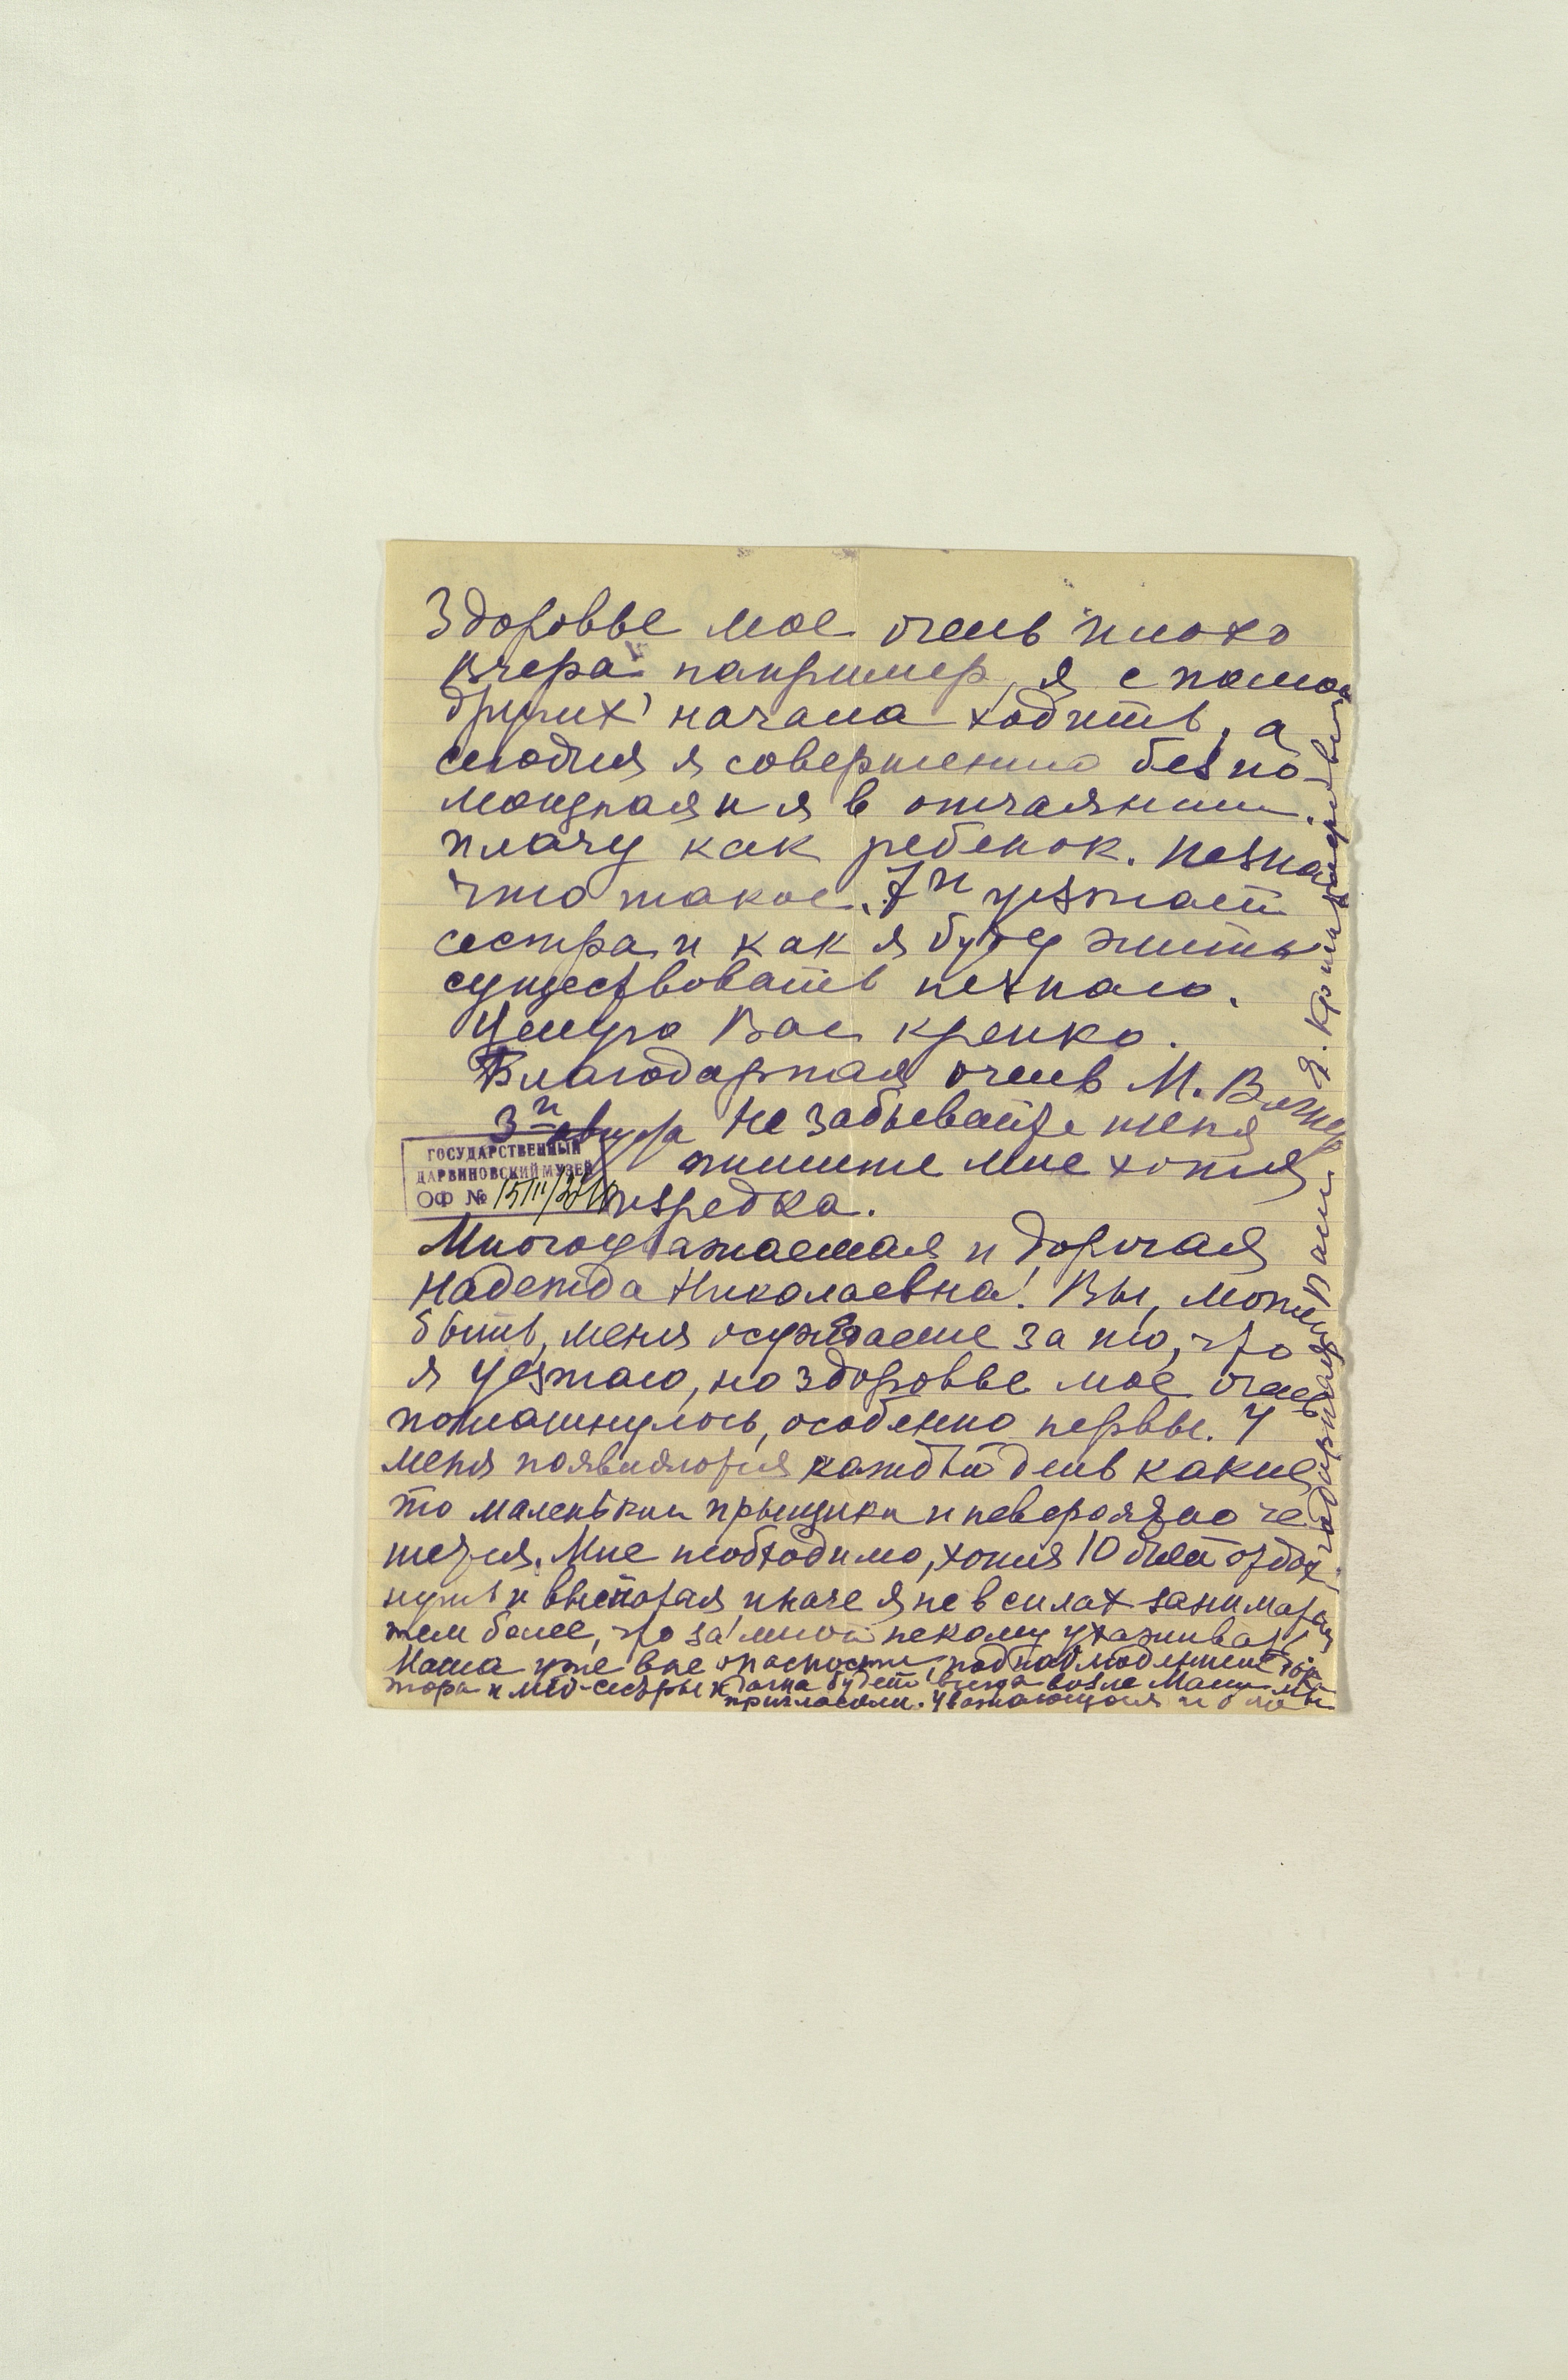 Здоровье мое очень плохо
вчера например, я с помощ
других начала ходить, а
сегодня я совершенно беспо-
мощная и я в отчаянии
плачу как ребенок. Незнаю
что такое. 7го уезжает
сестра и как я буду жить
существовать незнаю.
Целую Вас крепко.
Благодарная очень М. 
3го Не забывайте меня
пишите мне хотя
изредка.
ГОСУДАРСТВЕННЫЙ
ДАРВИНОВСКИЙ МУЗЕЙ
ОФ №
Многоуважаемая и дорогая
Надежда Николаевна! Вы, может
быть, меня осуждаете за то, что
я уезжаю, но здоровье мое очень
пошатнулось, особенно нервы. У
меня появляются каждый день какие
то маленькии прыщики и невероятно че
шется. Мне необходимо, хотя 10 дней отдох
нуть и выспатся иначе я не в силах заниматся
тем более, что за мной некому ухаживать
Маша уже вне опасности, под наблюдением док
тора и мед-сестры к дочка будет всегда возле Маши мы
пригласили. Уважающая и бла
годарная Вам Я.